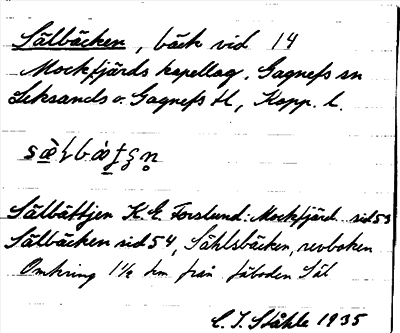 Sälbäcken, bäck vid 14
Mockfjärds kapellag, Gagnefs sn
Leksands o. Gagnefs tl, Kopp. l.
Sälbättjen K. E. Forslund: Mockfjärd sid 53
Sälbäcken sid 54, Sählsbäcken, revboken
Omkring 1½ km från fäboden Säl
C. I. Ståhle 1935